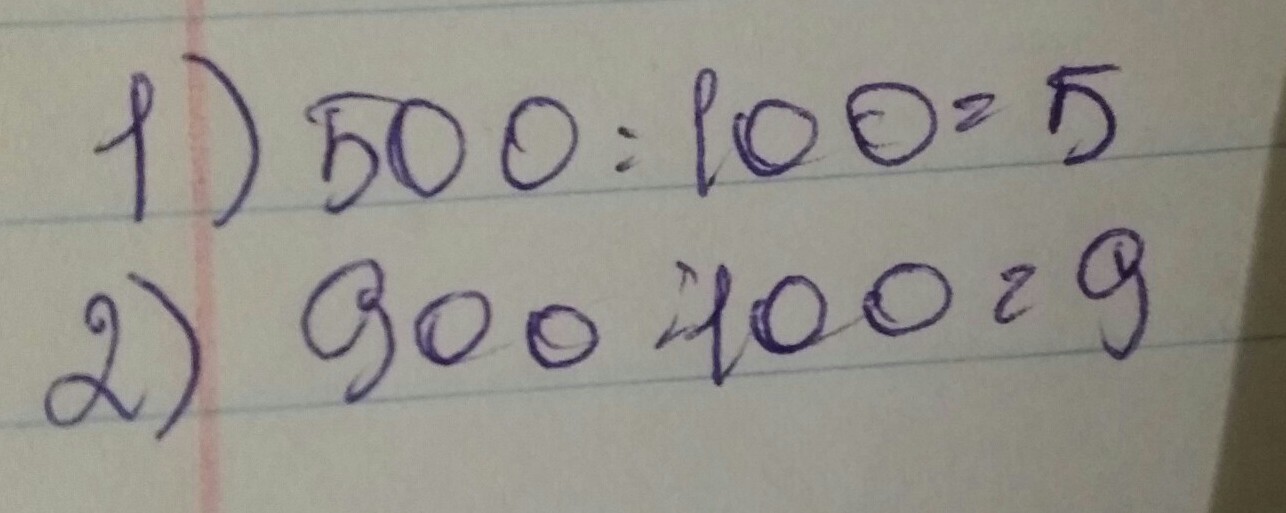 1) 500 : 100 = 5
2) 900 : 100 = 9